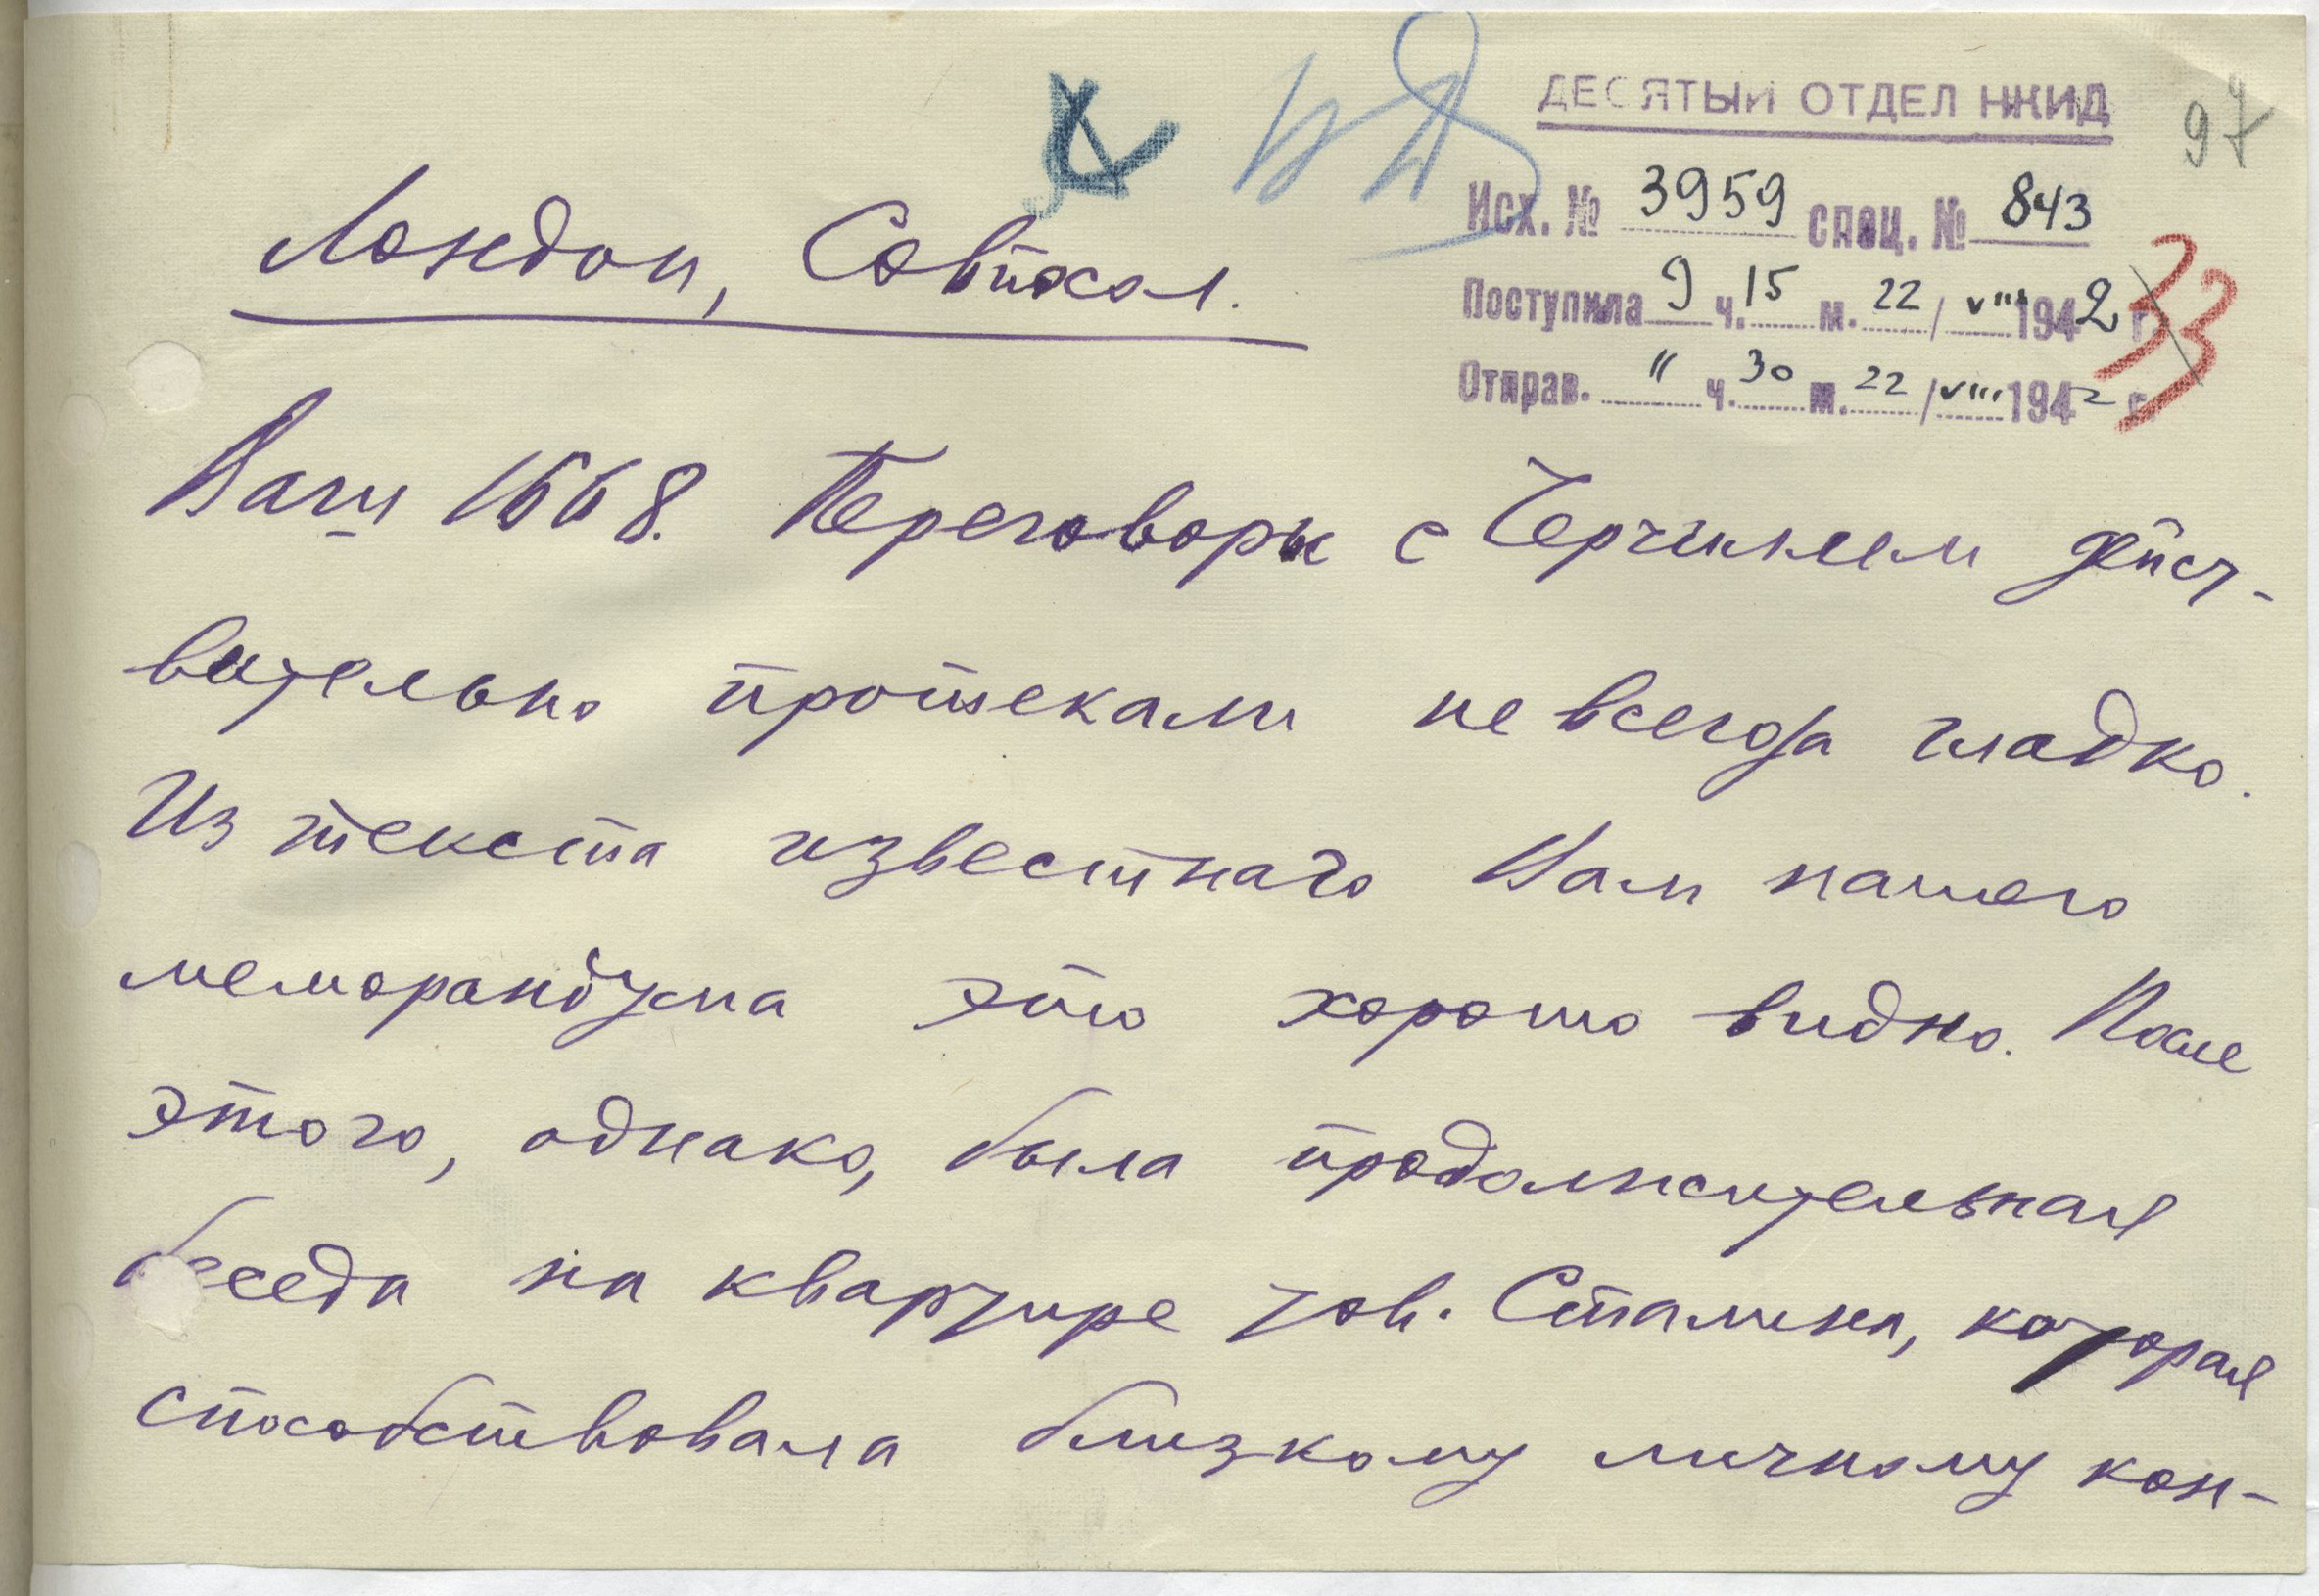 ДЕСЯТЫЙ ОТДЕЛ НКИД
97
Исх. № 3959 спец. № 843
Поступила 9 ч. 15 м. 22/VIII 1942 г.
Отправ. " ч. 30 м. 22/VIII 1942 г.
33
Лондон, Совпосол.
Ваш 1668. Переговоры с Черчиллем дейст-
вительно протекали не всегда гладко.
Из текста известного Вам нашего
меморандума это хорошо видно. После
этого, однако, была продолжительная
беседа на квартире тов. Сталина, которая
способствовала близкому личному кон-